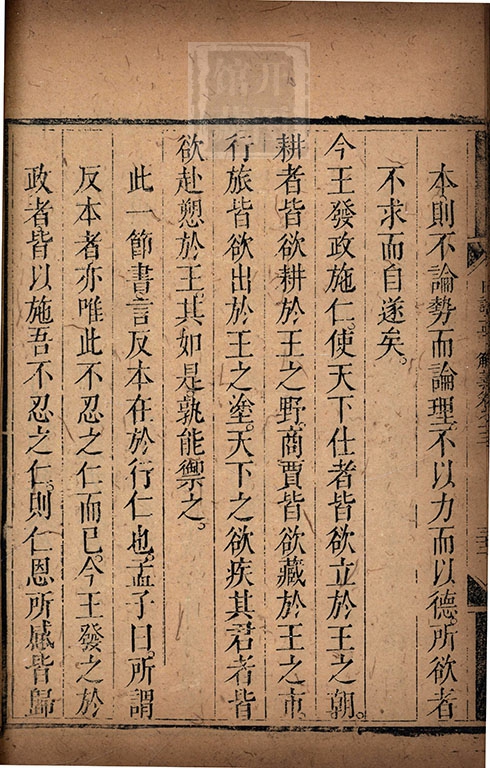 本則不論勢而論理。不以力而以德。所欲者
不求而自遂矣。
今王發政施仁。使天下仕者皆欲立於王之朝。
耕者皆欲耕於王之野。商賈皆欲藏於王之市。
行旅皆欲出於王之塗。天下之欲疾其君者皆
欲赴愬於王。其如是。孰能禦之。
此一節書言反本在於行仁也。孟子曰。所謂
反本者亦唯此不忍之仁而已。今王發之於
政者皆以施吾不忍之仁。則仁恩所感皆歸